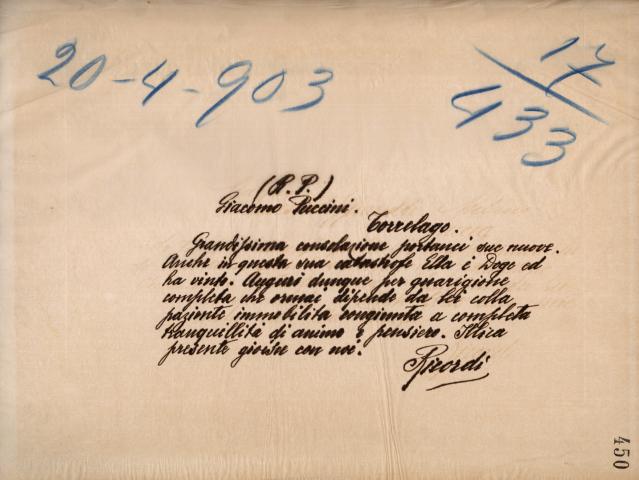 20-4-903
17
433
(R. P.)
Giacomo Puccini.
Torrelago.
Grandissima consolazione portanci sue nuove.
Anche in questa sua catastrofe Ella è Doge ed
ha vinto. Auguri dunque per guarigione
completa che ormai dipende da Lei colla
paziente immobilità congiunta a completa
tranquillità di animo e pensiero. Illica
presente gioisce con noi.
Ricordi
450